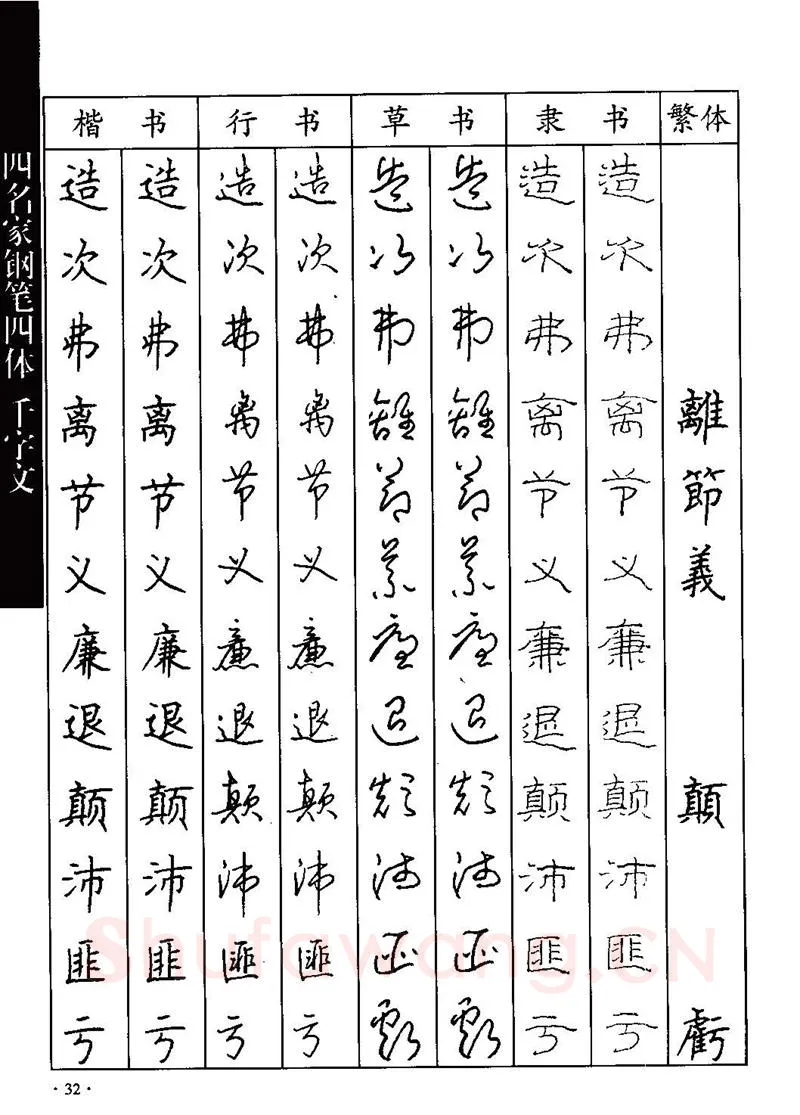 四名家钢笔四体 千字文
楷书 行书 草书 隶书 繁体
造 造 造 造 造 造 造 造
次 次 次 次 次 次 次 次
弗 弗 弗 弗 弗 弗 弗 弗
离 离 离 离 離 離 离 离 離
节 节 节 节 節 節 节 节 節
义 义 义 义 義 義 义 义 義
廉 廉 廉 廉 廉 廉 廉 廉
退 退 退 退 退 退 退 退
颠 颠 颠 颠 颠 颠 颠 颠 顛
沛 沛 沛 沛 沛 沛 沛 沛
匪 匪 匪 匪 匪 匪 匪 匪
亏 亏 亏 亏 虧 虧 亏 亏 虧
Shufawang.CN
·32·